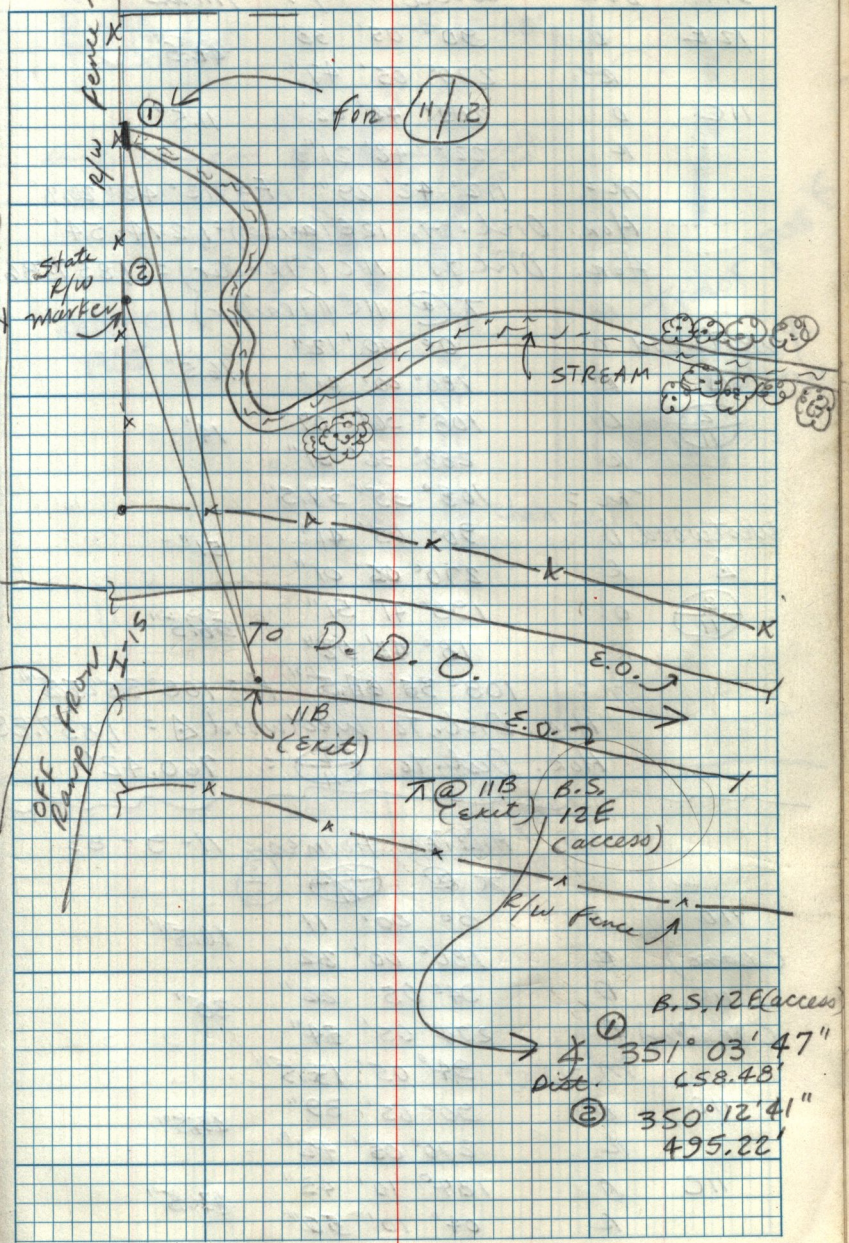 R/W Fence
①
for 11/12
State
R/W
Marker
②
STREAM
To D. D. O.
E.O.
OFF Ramp FROM I-15
11B
(Exit)
E.O.
⊼ @ 11B
(Exit)
B.S.
12E
(access)
R/W Fence
B.S. 12E (access)
∡ ① 351° 03' 47"
Dist. 658.48'
② 350° 12' 41"
495.22'